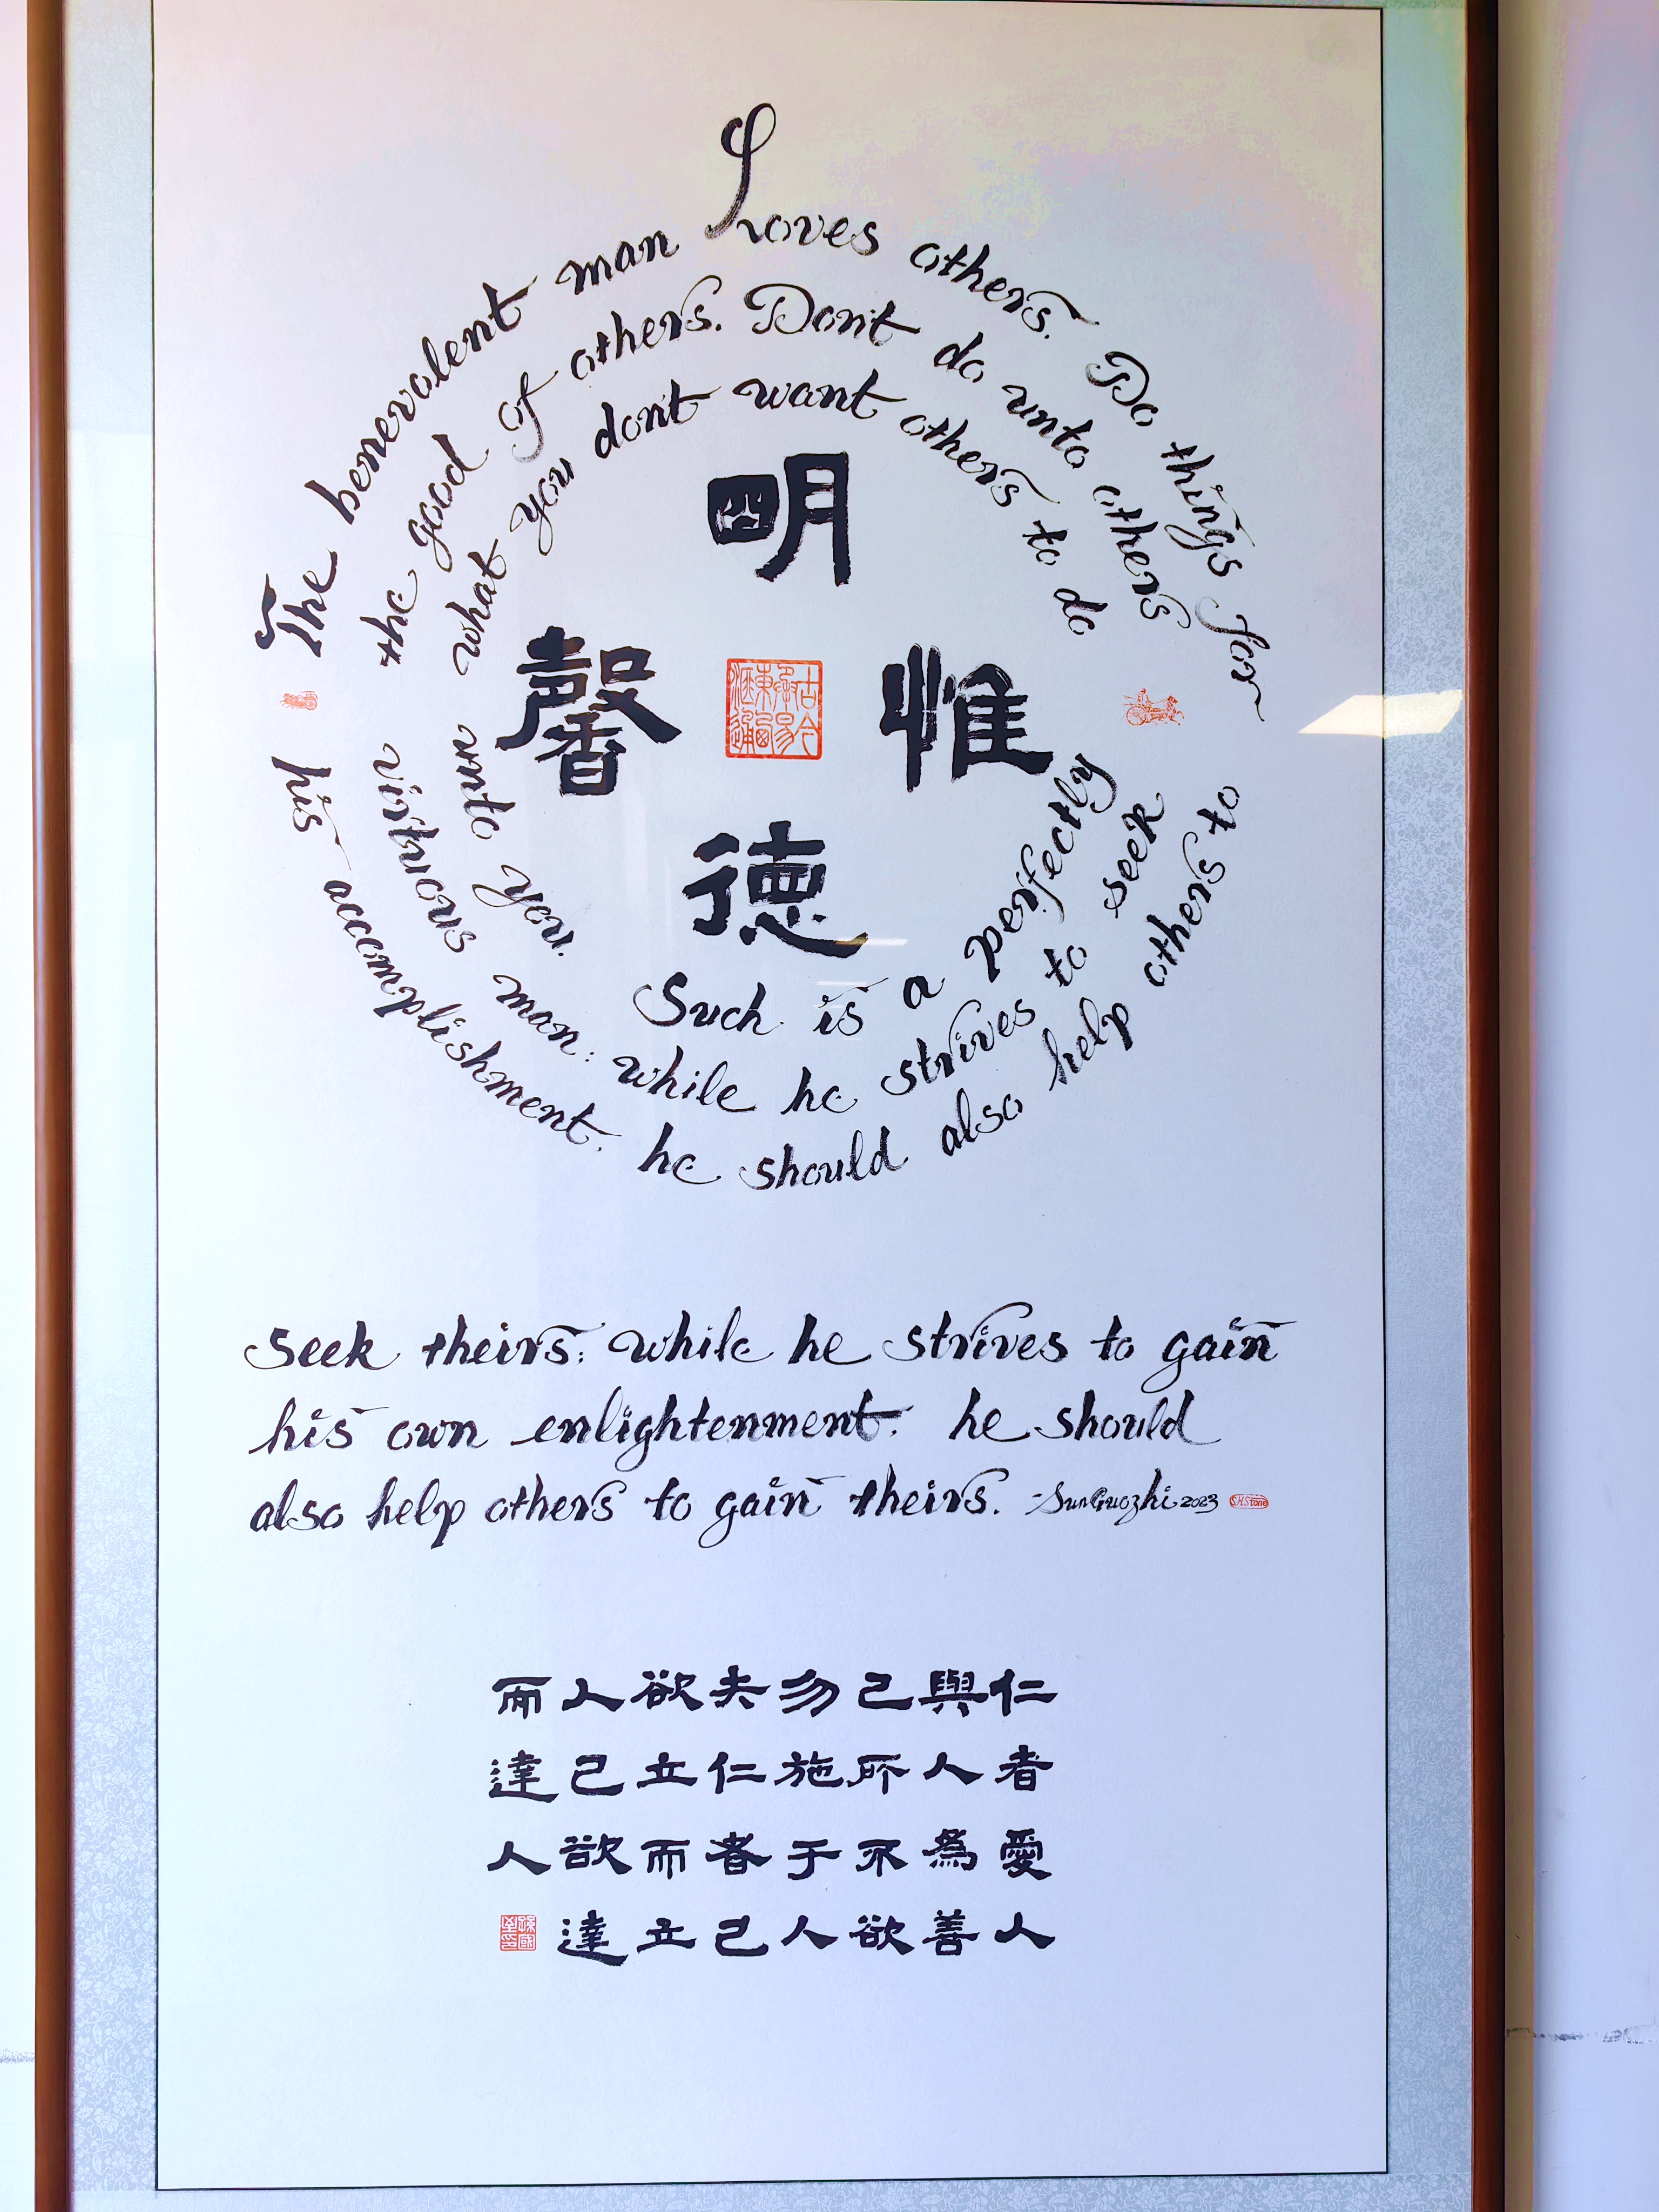 The benevolent man Loves others. Do things for
the good of others. Don't do unto others
what you don't want others to do
unto you.
Such is a perfectly
virtuous man: while he strives to seek
his accomplishment, he should also help others to
明
德
惟
馨
seek theirs; while he strives to gain
his own enlightenment, he should
also help others to gain theirs. -SunGuozhi 2023 S.H.Stone
仁者愛人
與人爲善
己所不欲
勿施于人
夫仁者己
欲立而立
人己欲達
而達人